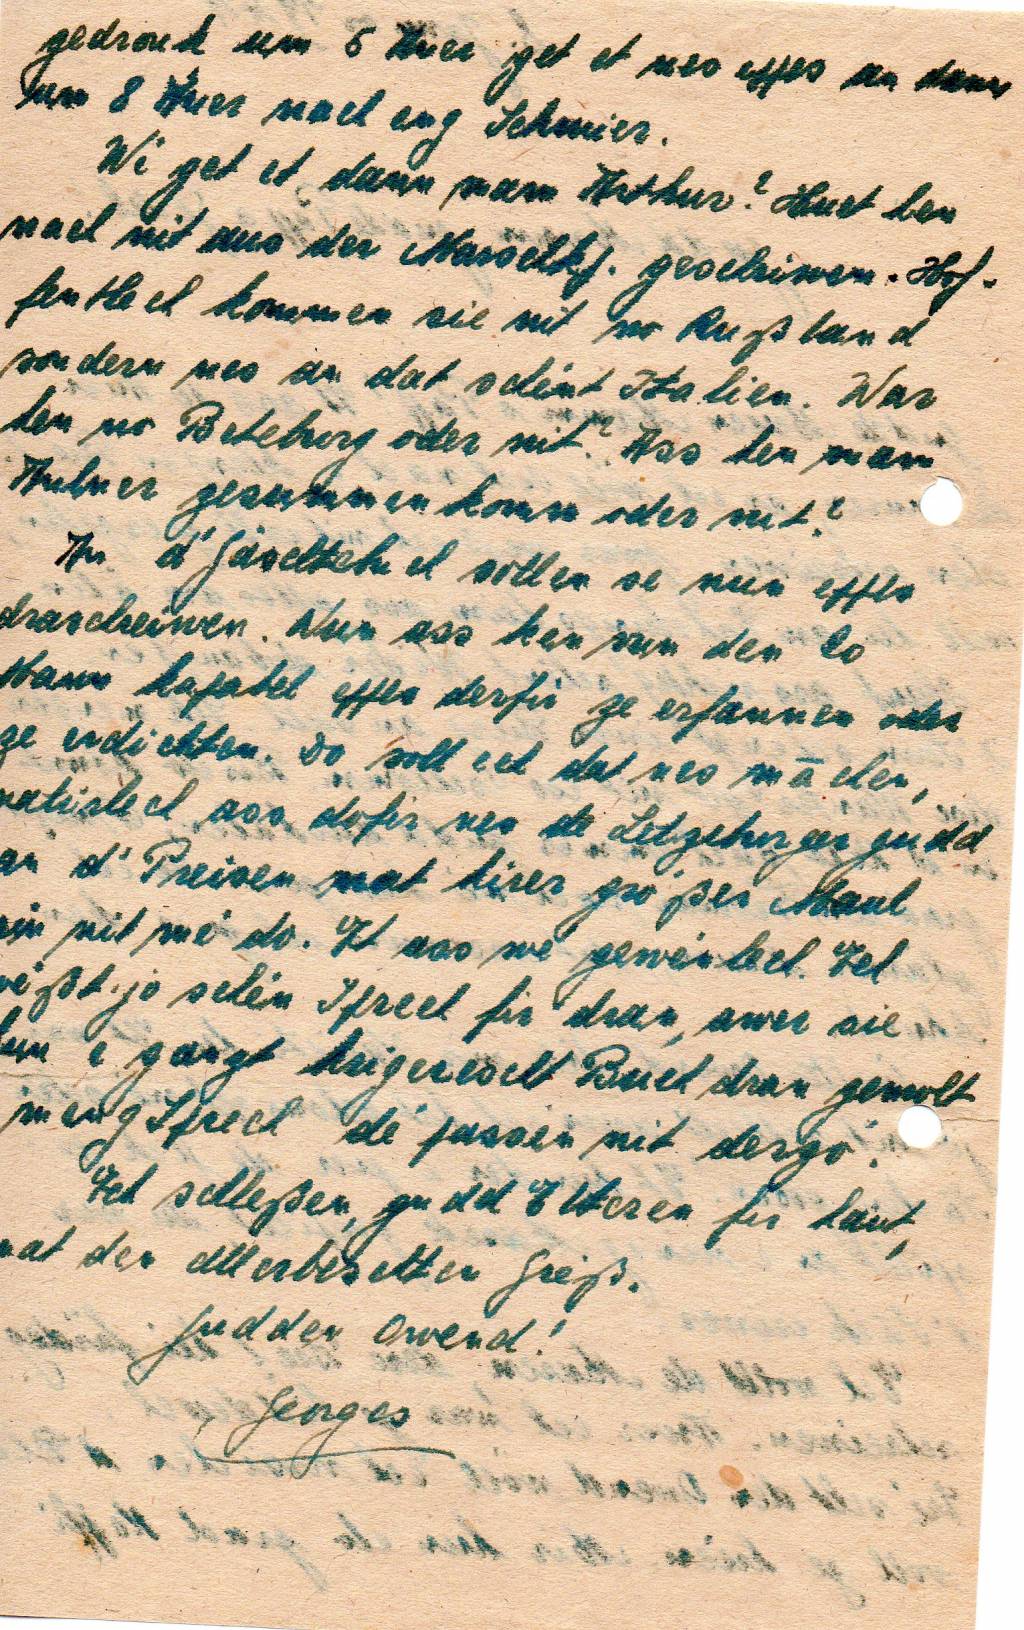 gedronk um 5 Auer get et nes eppes an dann
um 8 Auer nach eng Schmier.
Wi get et dann mam Arthur? Huet hen
nach nit aus der Marschkp. geschriwen. Hof-
fentlech kommen sie nit no Rußland
sondern nes an dat schéint Italien. War
hen no Beteburg oder nit? Ass hen mam
gesummen komm oder nit?
An d' sollen se nun eppes
draschreiwen. Nun ass ken vun den 20
Mann kapabel eppes derfir ze erfannen oder
ze erdichten. Do soll ech dat nes māchen,
natirlech ass dofir nes de Letzeburger gudd
an d' Preisen mat hirer großer Maul
sin nit mé do. Et ass we gewéinlech. Ech
wéißt jo schéin Sprech fir dran, awer sie
hun e ganzt Buch dran gemolt
meng Sprech dé passen nit dergo.
Ech schleßen, gudd Elteren fir haut,
mat den allerbeschten Greiß.
Gudden Owend!
Georges